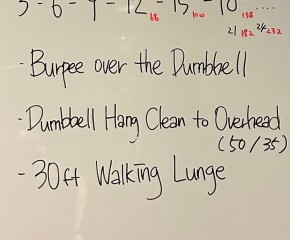 3 - 6 - 9 - 12 - 15 - 18 ....
68 100 138
21 182 24 232
- Burpee over the Dumbbell
- Dumbbell Hang Clean to Overhead
(50/35)
- 30ft Walking Lunge